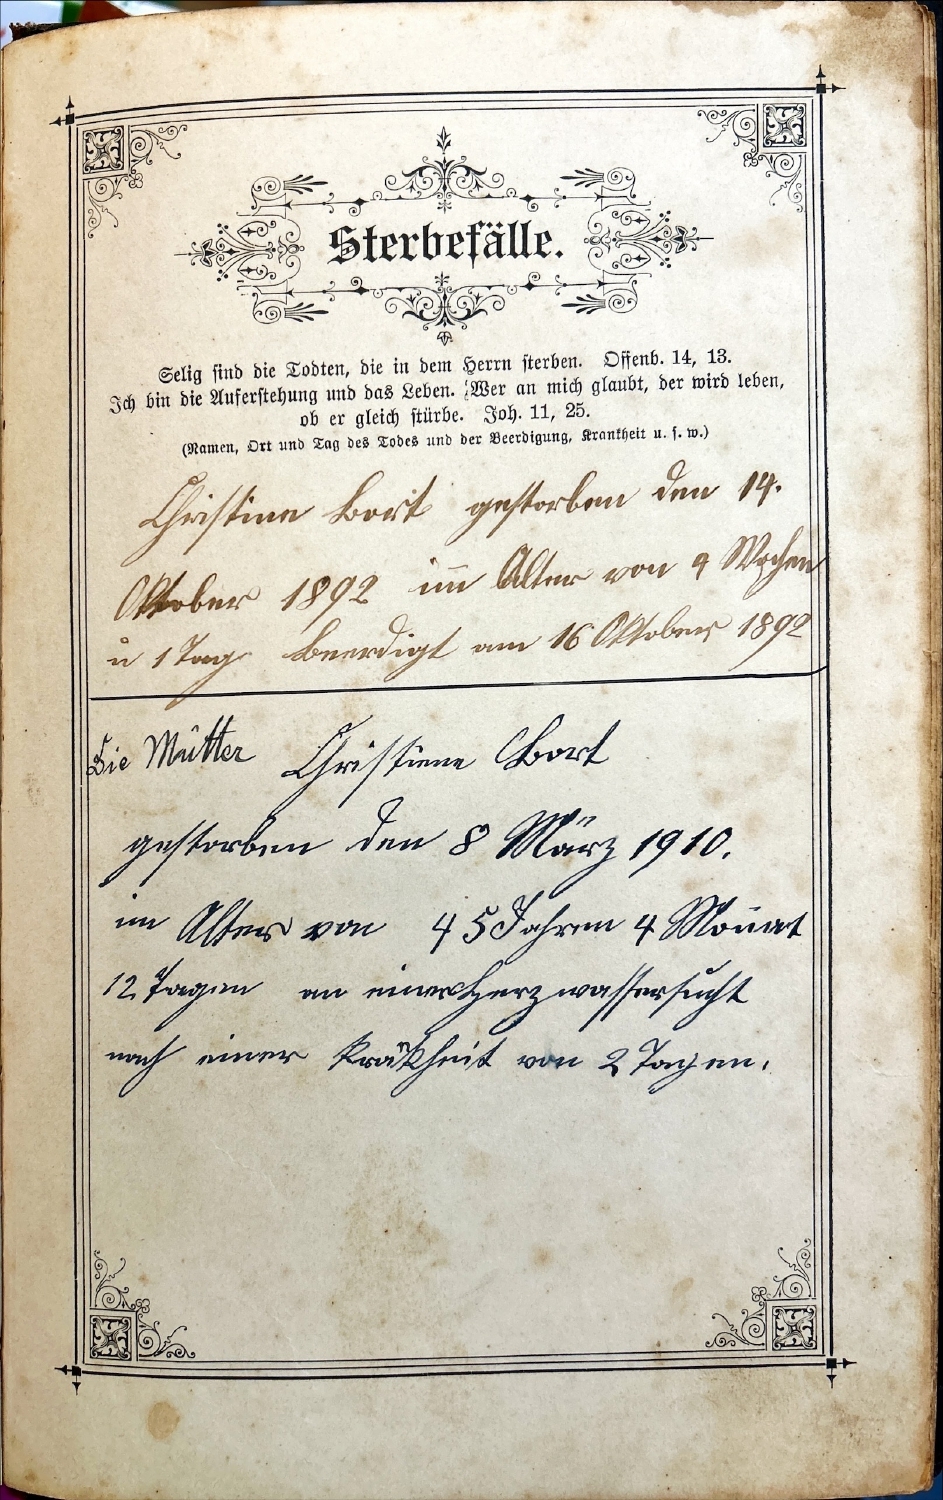 Sterbefälle.
Selig sind die Todten, die in dem Herrn sterben. Offenb. 14, 13.
Ich bin die Auferstehung und das Leben. Wer an mich glaubt, der wird leben,
ob er gleich stürbe. Joh. 11, 25.
(Namen, Ort und Tag des Todes und der Beerdigung, Krankheit u. s. w.)
Christine Bort gestorben den 14.
Oktober 1892 im Alter von 4 Wochen
u 1 Tag Beerdigt am 16 Oktober 1892
Die Mutter Christiene Bort
gestorben den 8 März 1910.
im Alter von 45 Jahren 4 Monat
12 Tagen an einer Herzwassersucht
nach einer Krankheit von 2 Tagen.